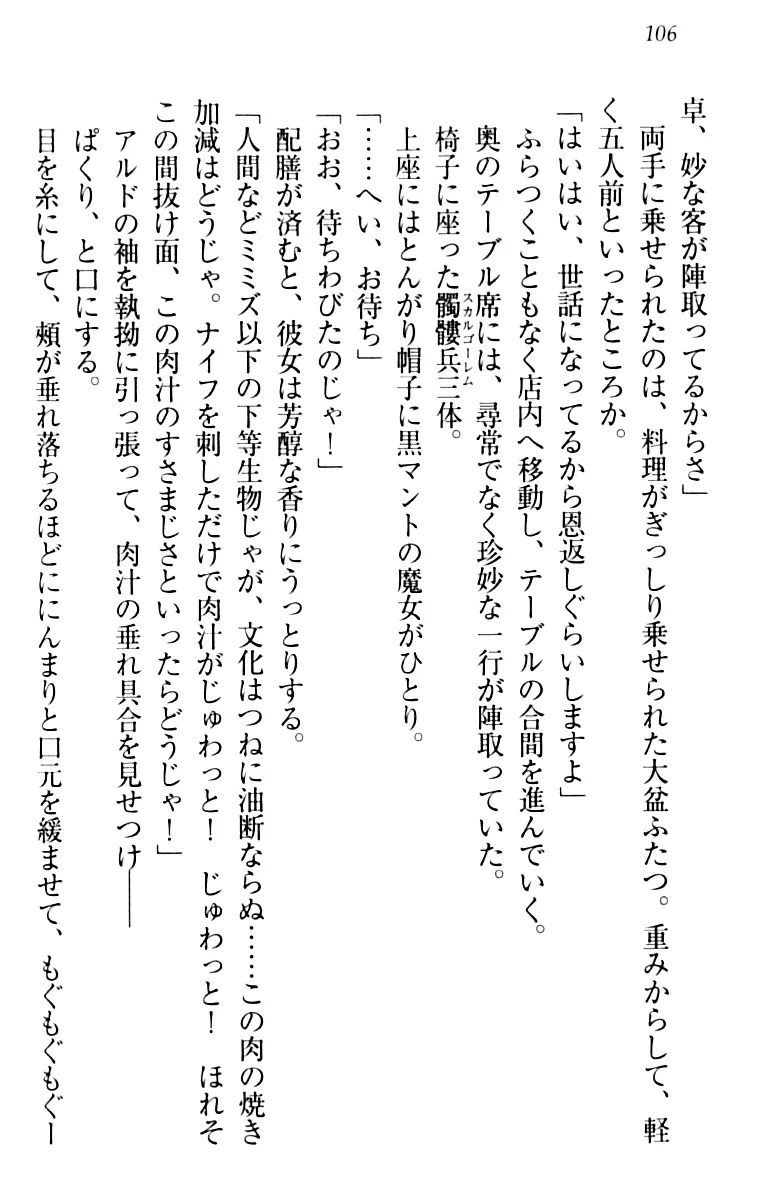 106
卓、妙な客が陣取ってるからさ」
　両手に乗せられたのは、料理がぎっしり乗せられた大盆ふたつ。重みからして、軽
く五人前といったところか。
「はいはい、世話になってるから恩返しぐらいしますよ」
　ふらつくこともなく店内へ移動し、テーブルの合間を進んでいく。
　奥のテーブル席には、尋常でなく珍妙な一行が陣取っていた。
　椅子に座った髑髏兵三体。
スカルゴーレム
　上座にはとんがり帽子に黒マントの魔女がひとり。
「……へい、お待ち」
「おお、待ちわびたのじゃ！」
　配膳が済むと、彼女は芳醇な香りにうっとりする。
「人間などミミズ以下の下等生物じゃが、文化はつねに油断ならぬ……この肉の焼き
加減はどうじゃ。ナイフを刺しただけで肉汁がじゅわっと！　じゅわっと！　ほれそ
この間抜け面、この肉汁のすさまじさといったらどうじゃ！」
　アルドの袖を執拗に引っ張って、肉汁の垂れ具合を見せつけ――
　ぱくり、と口にする。
　目を糸にして、頬が垂れ落ちるほどににんまりと口元を緩ませて、もぐもぐもぐー